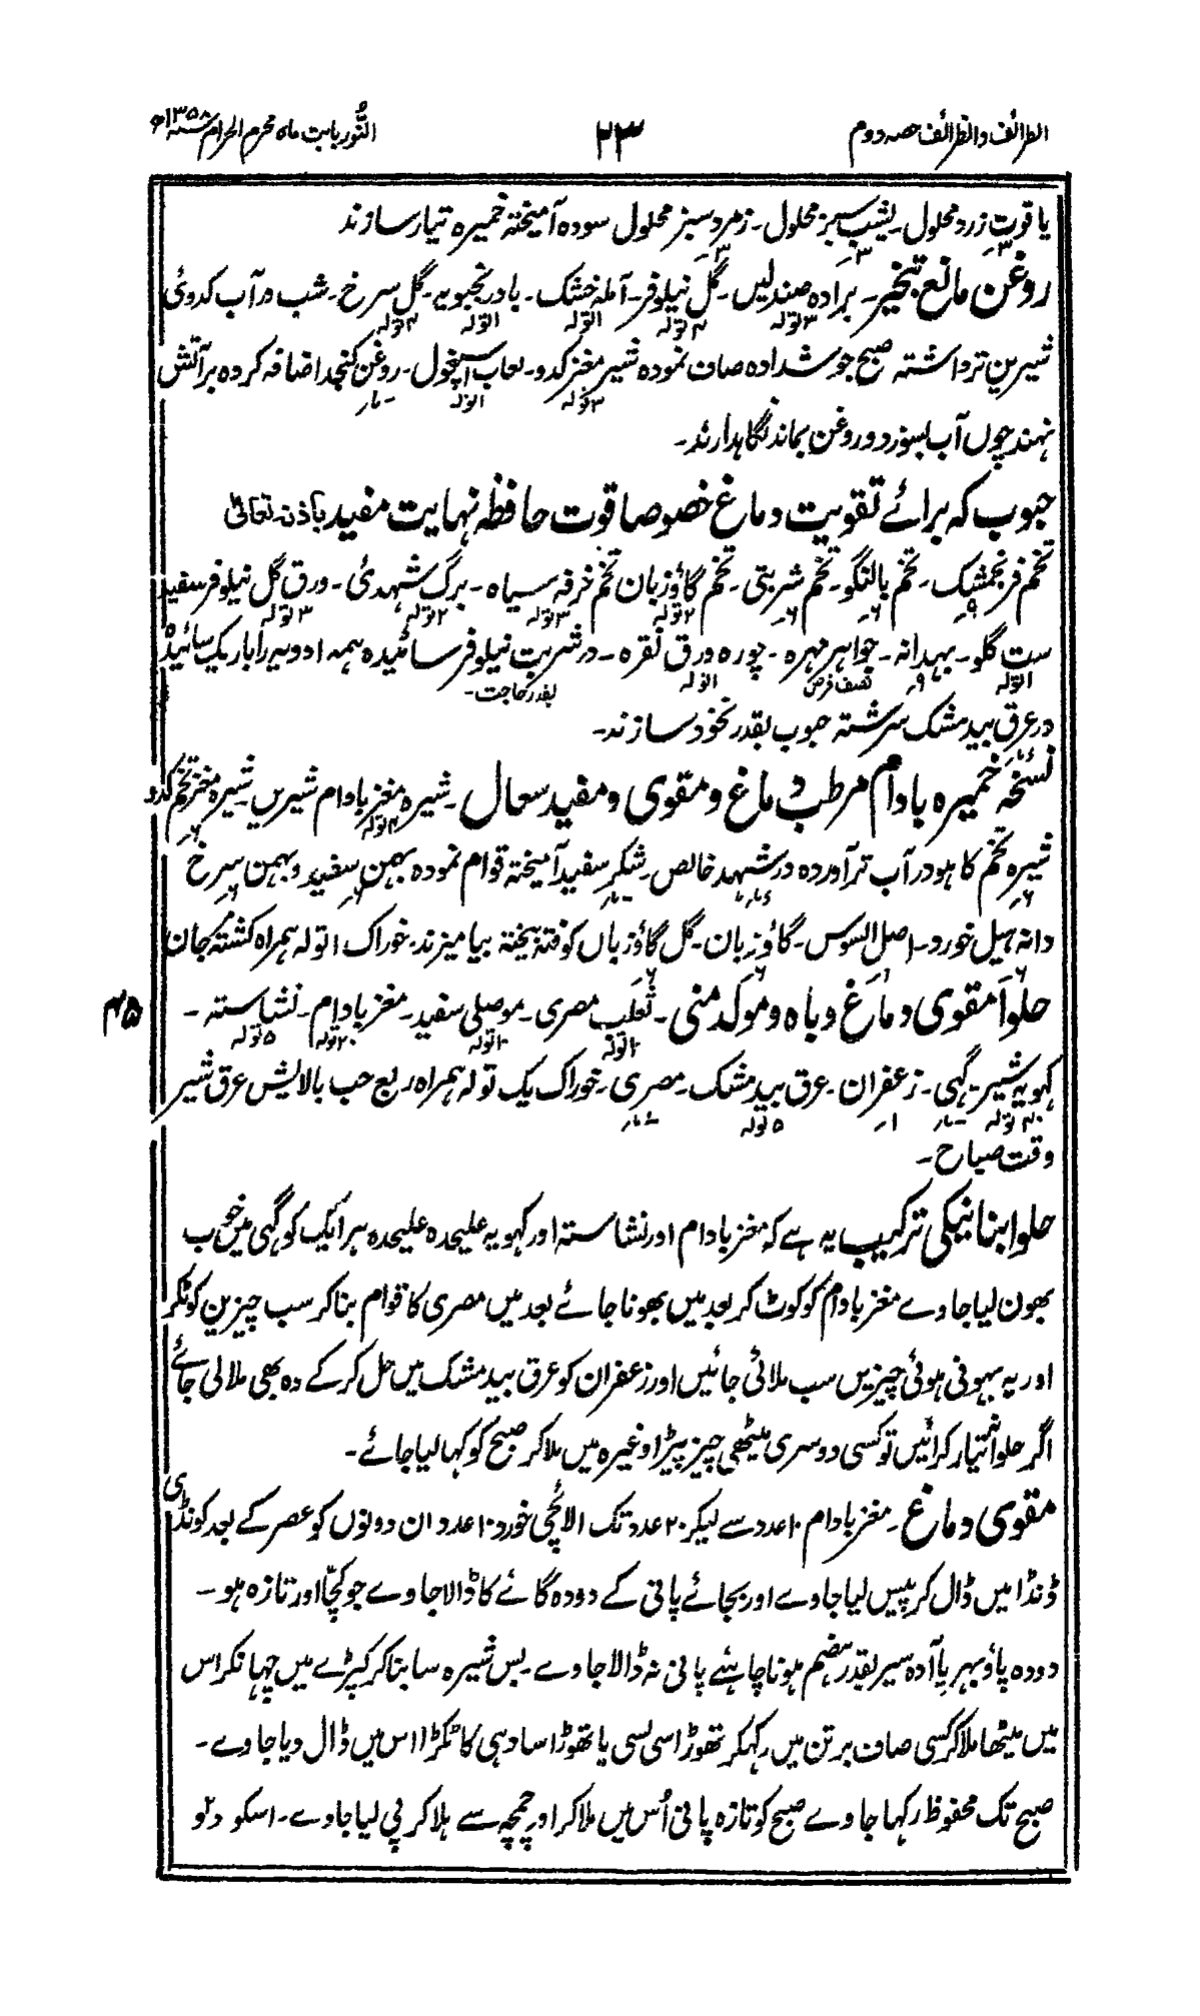 الطرائف والظرائف حصہ دوم
۲۳
النُّور بابت ماہ محرم الحرام ۱۳۵۸ھ
یاقوت زرد محلول۔ یشب سبز محلول۔ زمرد سبز محلول سودہ آمیختہ خمیرہ تیار سازند
۳ ۳ ۳
روغن مانع تبخیر۔ برادہ صندلیں۔ گل نیلوفر۔ آملہ خشک۔ بادرنجبویہ۔ گل سرخ۔ شب در آب کدوئی
۳ تولہ ۴ تولہ ا تولہ ا تولہ ۴ تولہ
شیرین تر داشتہ صبح جوشدادہ صاف نمودہ شیر مغز کدو۔ لعاب اسپغول۔ روغن کنجد اضافہ کردہ بر آتش
۳ تولہ ا تولہ
نہند چوں آب بسوزد و روغن بماند نگاہدارند۔
حبوب کہ برائے تقویت دماغ خصوصا قوت حافظہ نہایت مفید باذنہ تعالیٰ
تخم فرنجمشک۔ تخم بالنگو۔ تخم شربتی۔ تخم گاؤزبان تخم خرفہ سیاہ۔ برگ شہدئی۔ ورق گل نیلوفر سفید
۹ ۶ ۶ ۲ تولہ ۳ تولہ ۲ تولہ ۳ تولہ
ست گلو۔ بہدانہ۔ جواہر مہرہ۔ چورہ ورق نقرہ۔ در شربت نیلوفر سائیدہ ہمہ ادویہ را باریک سائیدہ
ا تولہ ۹ نصف قرص ا تولہ بقدر حاجت۔
در عرق بید مشک سرشتہ حبوب بقدر نخود سازند۔
نسخہ خمیرہ بادام مرطب دماغ و مقوی و مفید سعال۔ شیرہ مغز بادام شیریں۔ شیرہ مغز تخم کدو
۴ تولہ ۶
شیرہ تخم کاہو در آب تر آوردہ در شہد خالص۔ شکر سفید آمیختہ قوام نمودہ بہمن سفید و بہمن سرخ
۶ ۶ ۶
دانہ ہیل خورد۔ اصل السوس۔ گاؤزبان۔ گل گاؤزباں کوفتہ بیختہ بیامیزند۔ خوراک ا تولہ ہمراہ کشتہ مرجان
۶ ۶ ۶
حلوا مقوی دماغ و باہ و مولد منی۔ ثعلب مصری۔ موصلی سفید۔ مغز بادام۔ نشاستہ۔
۲ تولہ ۲ تولہ ۲۰ تولہ ۵ تولہ
۴۵
کہویہ شیر۔ گہی۔ زعفران۔ عرق بید مشک۔ مصری۔ خوراک یک تولہ ہمراہ ربع حب بالایش عرق شیر
۲۰ تولہ ۱ ۵ تولہ
وقت صباح۔
حلوا بنانیکی ترکیب یہ ہے کہ مغز بادام اور نشاستہ اور کہویہ علیحدہ علیحدہ ہر ایک کو گہی میں خوب
بھون لیا جاوے مغز بادام کو کوٹ کر بعد میں بھونا جائے بعد میں مصری کا قوام بنا کر سب چیزیں کوٹکر
اور یہ بہونی ہوئی چیزیں سب ملائی جائیں اور زعفران کو عرق بید مشک میں حل کر کے وہ بھی ملا لی جائے
اگر حلوا نہ تیار کرائیں تو کسی دوسری میٹھی چیز پیڑا وغیرہ میں ملا کر صبح کو کہا لیا جائے۔
مقوی دماغ۔ مغز بادام ۱۰ عدد سے لیکر ۲۰ عدد تک الائچی خورد ۱۰ عدد ان دونوں کو عصر کے بعد کونڈی
ڈنڈا میں ڈال کر پیس لیا جاوے اور بجائے پانی کے دودہ گائے کا ڈالا جاوے جو کچّا اور تازہ ہو۔
دودہ پاؤ بہر یا آدہ سیر بقدر ہضم ہونا چاہئے پانی نہ ڈالا جاوے۔ بس شیرہ سا بنا کر کپڑے میں چہانکر اس
میں میٹھا ملا کر کسی صاف برتن میں رکہکر تھوڑا سی لسی یا تھوڑا سا دہی کا ٹکڑا اس میں ڈال دیا جاوے۔
صبح تک محفوظ رکہا جاوے صبح کو تازہ پانی اُس میں ملا کر اور چمچہ سے ہلا کر پی لیا جاوے۔ اسکو دو